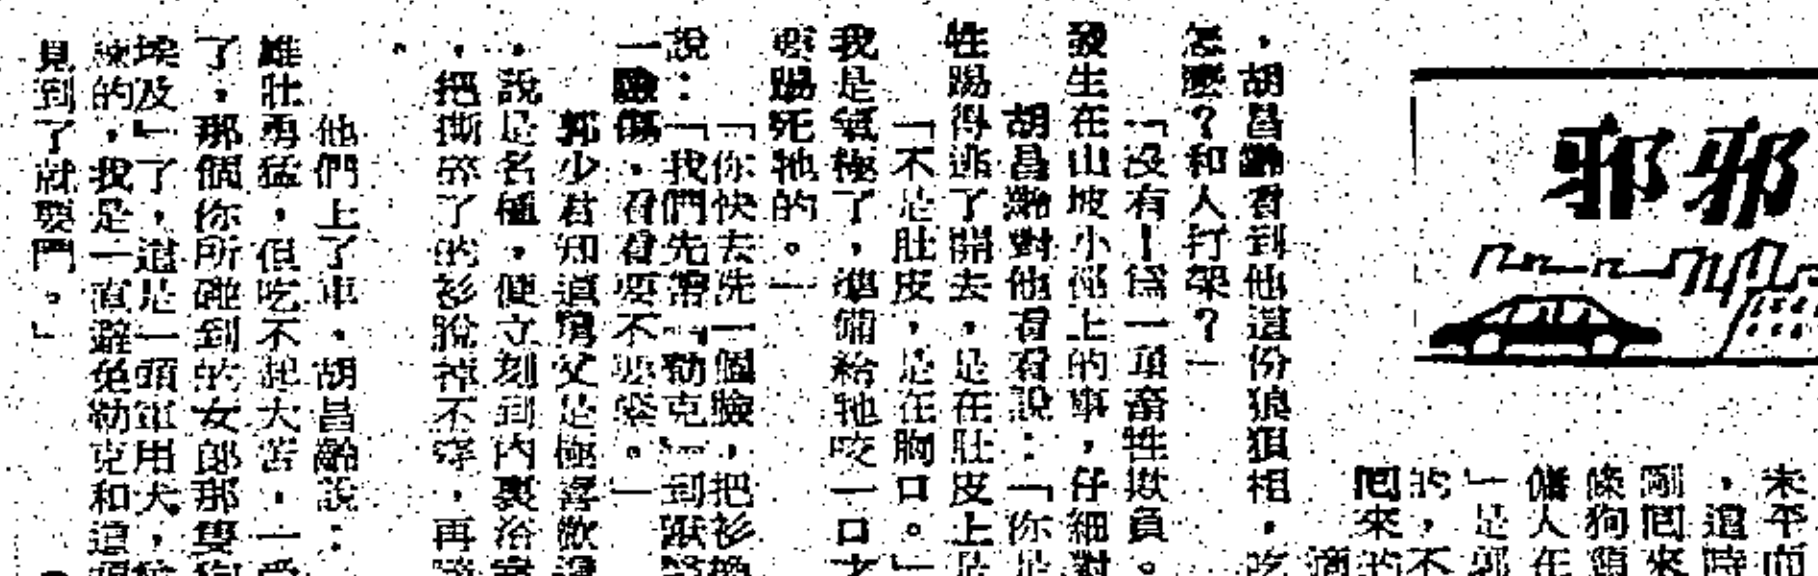 邪邪
未平而
，這時
剛囘來
條狗頭
傭人在
﹂是郭
的，不
囘來的
，胡昌齡看到他這份狼狽相，吃
怎麼？和人打架？﹂
﹁沒有！爲一頭畜牲欺負。
發生在山坡小徑上的事，仔細對
胡昌齡對他看看說：﹁你是
牲踢得逃了開去，是在肚皮上是
﹁不是肚皮，是在胸口。﹂
我是氣極了，準備給牠咬一口才
踢死牠的。﹂
﹁你快去洗一個臉，把衫換
說：﹁我們先帶﹁勒克﹂到獸醫
一驗傷，看看要不要緊。﹂
郭少君知道舅父是極喜歡這
，說是名種，便立刻到內裏浴室
，把撕碎了的衫脫掉不穿，再
。
他們上了車，胡昌齡說：
雄壯勇猛，但吃不起大苦，一受
了，那個你所碰到的女郎那隻狗
埃及﹂了，這是一頭軍用犬，
練的，我是一直避免勒克和這頭
見到了就要鬥。﹂